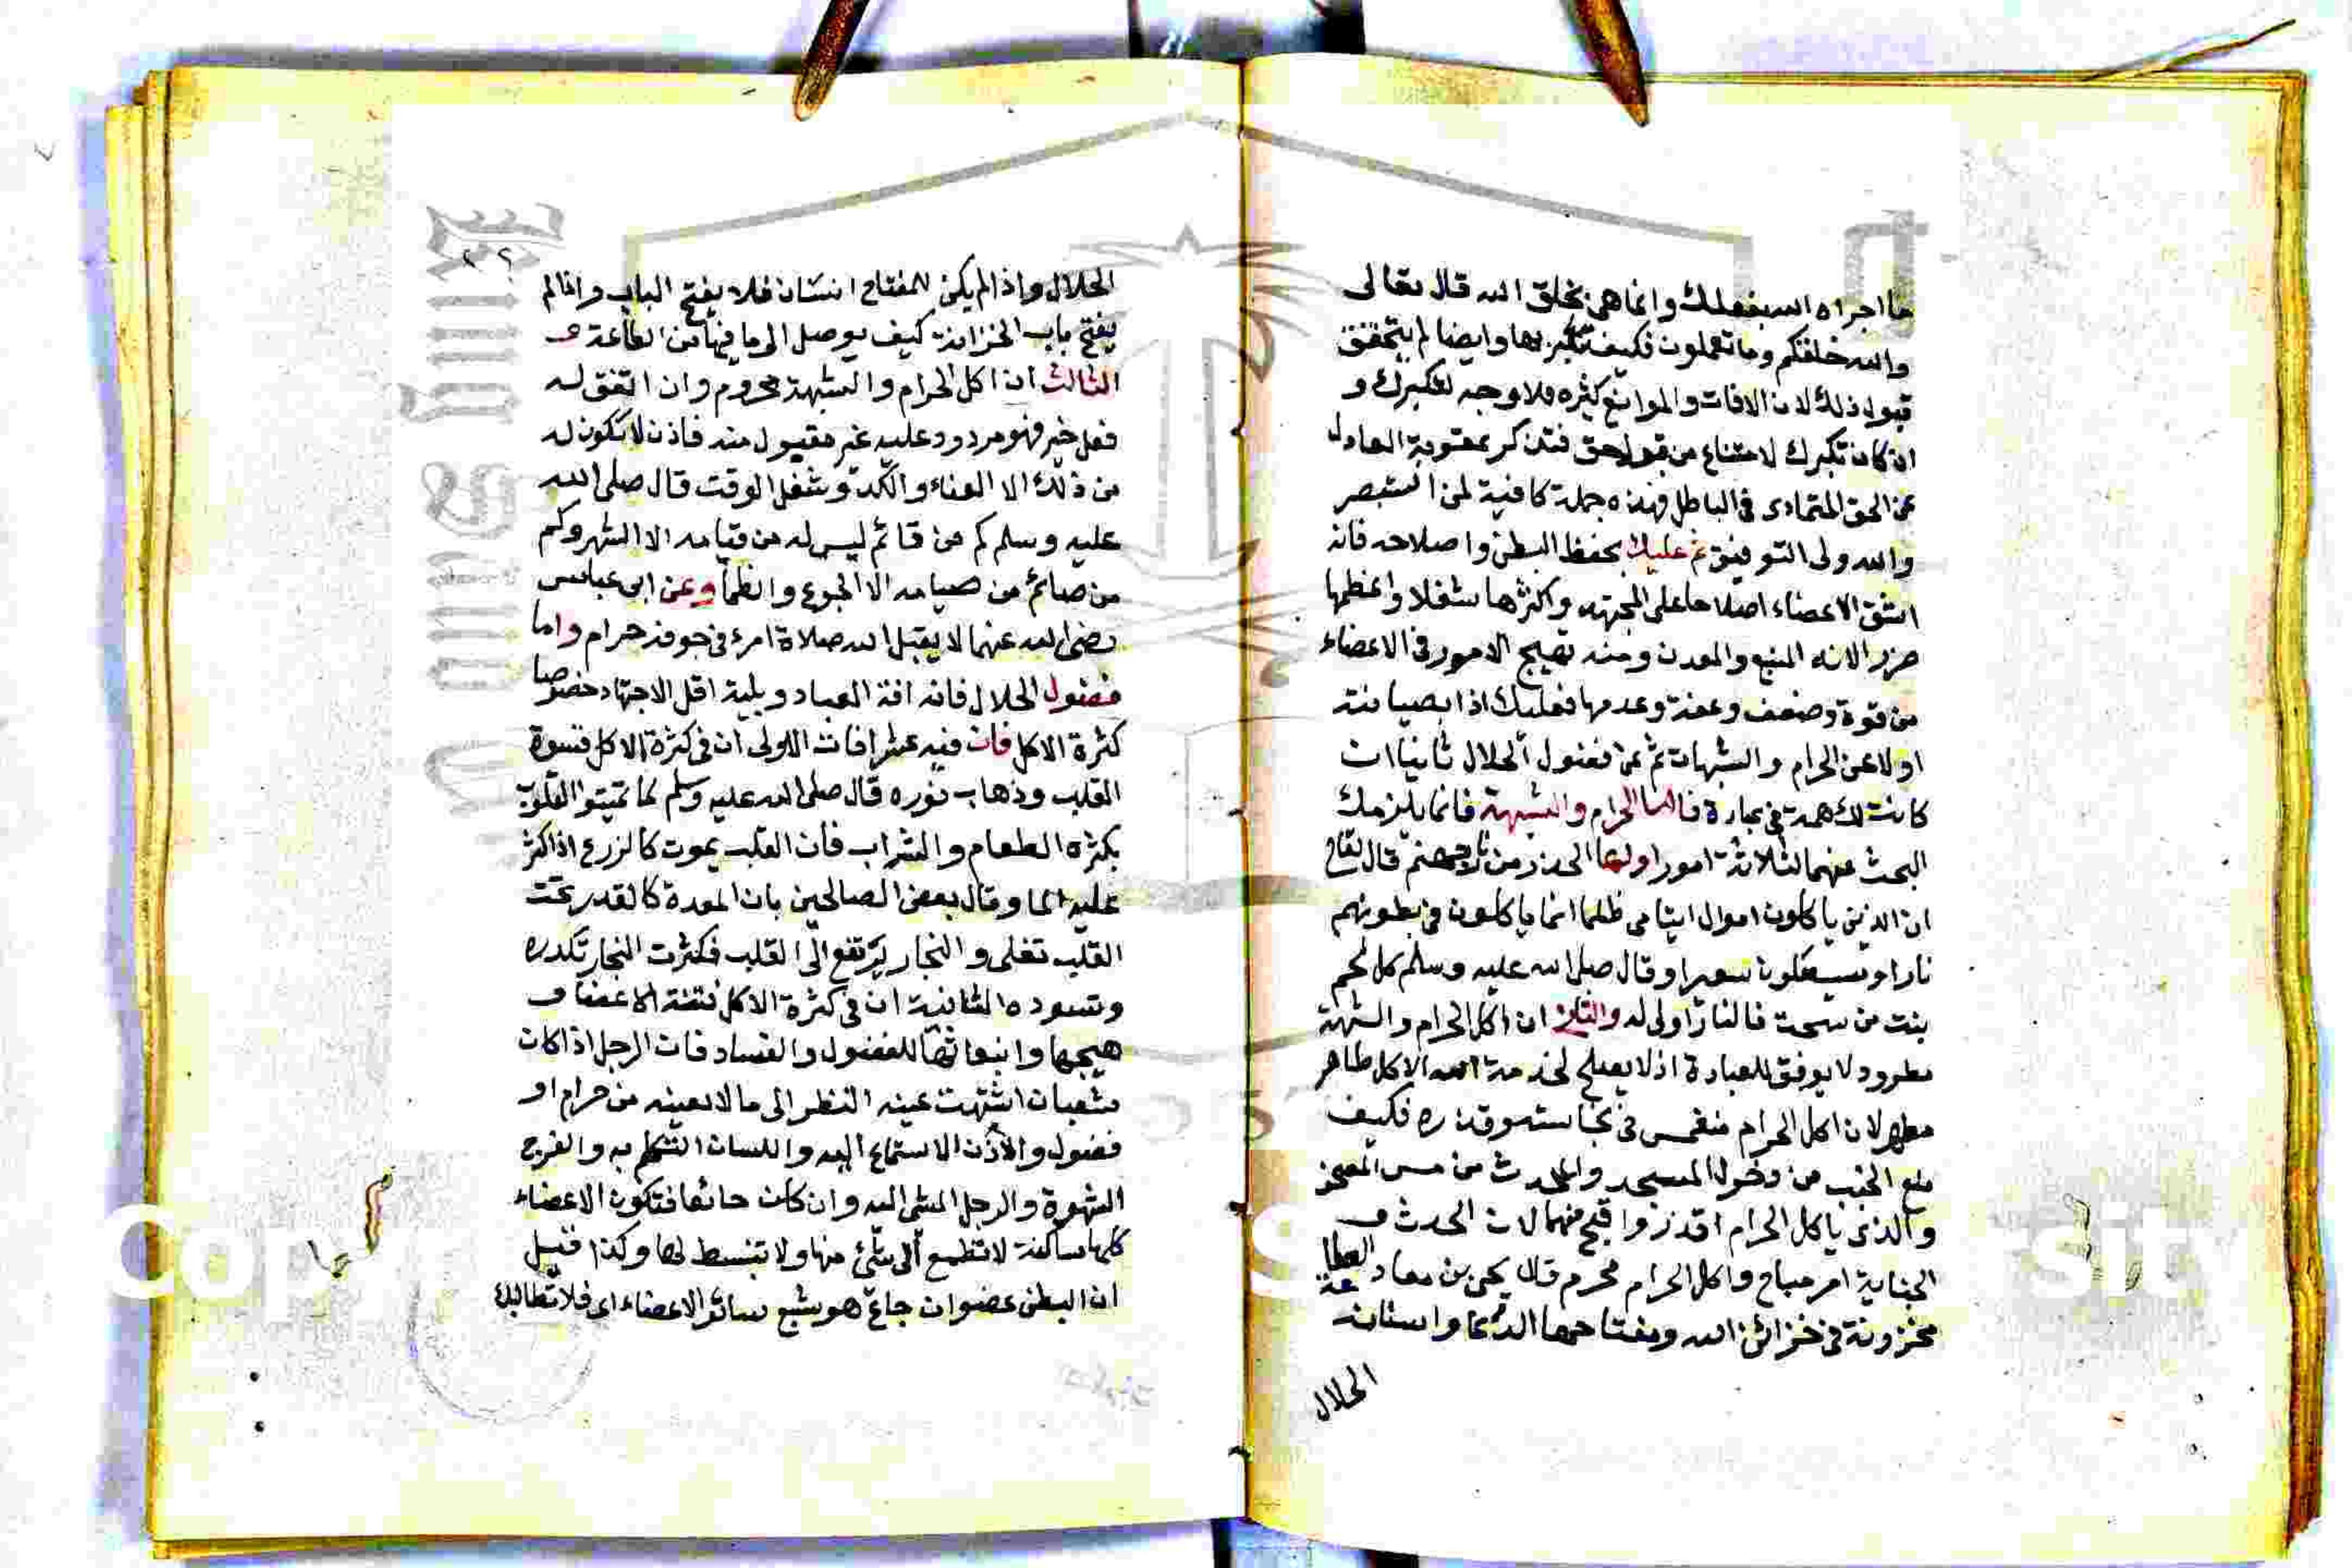 ما اجراه الله بفعلك وانما هي بخلق الله قال تعالى
والله خلقكم وما تعملون فكيف تتكبر بها وايضا لم يتحقق
قبول ذلك لان الافات والموانع كثيره فلا وجه لتكبرك و
ان كان تكبرك لامتناع من قبول حق فتذكر عقوبة العادل
عن الحق المتمادى في الباطل فهذه جملة كافية لمن استبصر
والله ولى التوفيق ثم عليك بحفظ البطن واصلاحه فانه
اشق الاعضاء اصلاحا على المجتهد واكثرها شغلا واعظمها
ضررا لانه المنبع والمعدن ومنه تهيج الامور في الاعضاء
من قوة وضعف وعفة وعدمها فعليك اذا بصيانته
اولا عن الحرام والشبهات ثم عن فضول الحلال ثانيا ان
كانت لك همة في عبارة فاما الحرام والشبهة فانما يلزمك
البحث عنهما لثلاثة امور اولها الحذر من نار جهنم قال تعالى
ان الذين ياكلون اموال ايتامى ظلما انما ياكلون في بطونهم
نارا وسيصلون سعيرا وقال صلى الله عليه وسلم كل لحم
بنت من سحت فالنار اولى له والثاني ان اكل الحرام والشبهة
مطرود لا يوفق للعبادة اذ لا يصلح لخدمة الله الا كل طاهر
مطهر لان اكل الحرام منغمس في نجاسته وقذره فكيف
منع الجنب من دخول المسجد والمحدث من مس المصحف
والذى ياكل الحرام اقذر واقبح منهما لان الحدث و
الجنابة امر مباح واكل الحرام محرم قال يحيى بن معاد الطاعة
مخزونة في خزائن الله ومفتاحها الدعا واسنانه
الحلال
٢٢
الحلال واذا لم يكن للمفتاح اسنان فلا يفتح الباب واذا لم
يفتح باب الخزانة كيف يوصل الى ما فيها من الطاعة
الثالث ان اكل الحرام والشبهة محروم وان اتفق له
فعل خير فهو مردود عليه غير مقبول منه فاذن لا تكون له
من ذلك الا العناء والكد وشغل الوقت قال صلى الله
عليه وسلم كم من قائم ليس له من قيامه الا السهر وكم
من صائم من صيامه الا الجوع والظمأ وعن ابن عباس
رضى الله عنهما لا يقبل الله صلاة امرء في جوفه حرام واما
فضول الحلال فانه افة العباد وبلية اقل الاجتهاد خصوصا
كثرة الاكل فان فيه عشر افات الاولى ان في كثرة الاكل قسوة
القلب وذهاب نوره قال صلى الله عليه وسلم لا تميتوا القلوب
بكثرة الطعام والشراب فان القلب يموت كالزرع اذا كثر
عليه الما وقال بعض الصالحين بان المعدة كالقدر تحت
القلب تغلى والبخار يرتفع الى القلب فكثرت البخار تكدره
وتسوده الثانية ان في كثرة الاكل فتنة الاعضا و
هيجها وانبعاثها للفضول والفساد فان الرجل اذا كان
شبعان اشتهت عينه النظر الى ما لا يعينه من حرام او
فضول والأذن الاستماع اليه واللسان التكلم به والفرج
الشهوة والرجل المشى اليه وان كان جائعا فتكون الاعضاء
كلها ساكنة لا تطمع الى شئ منها ولا تنبسط لها وكذا قيل
ان البطن عضو ان جاع هو شبع سائر الاعضاء اى فلا تطالبك